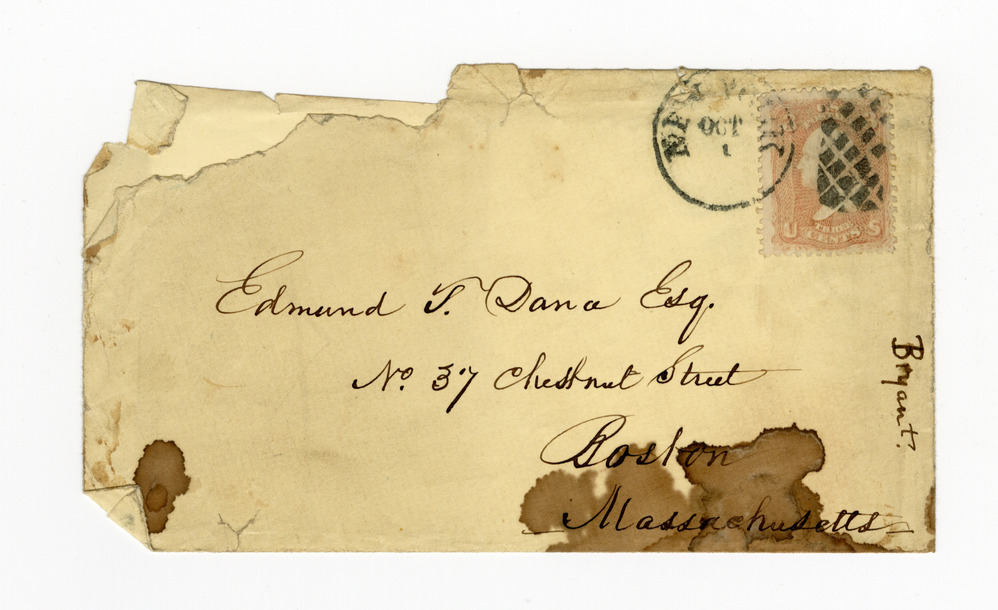 OCT
1
U S
CENTS
Edmund T. Dana Esq.
No. 37 Chestnut Street
Boston
Massachusetts
Bryant.